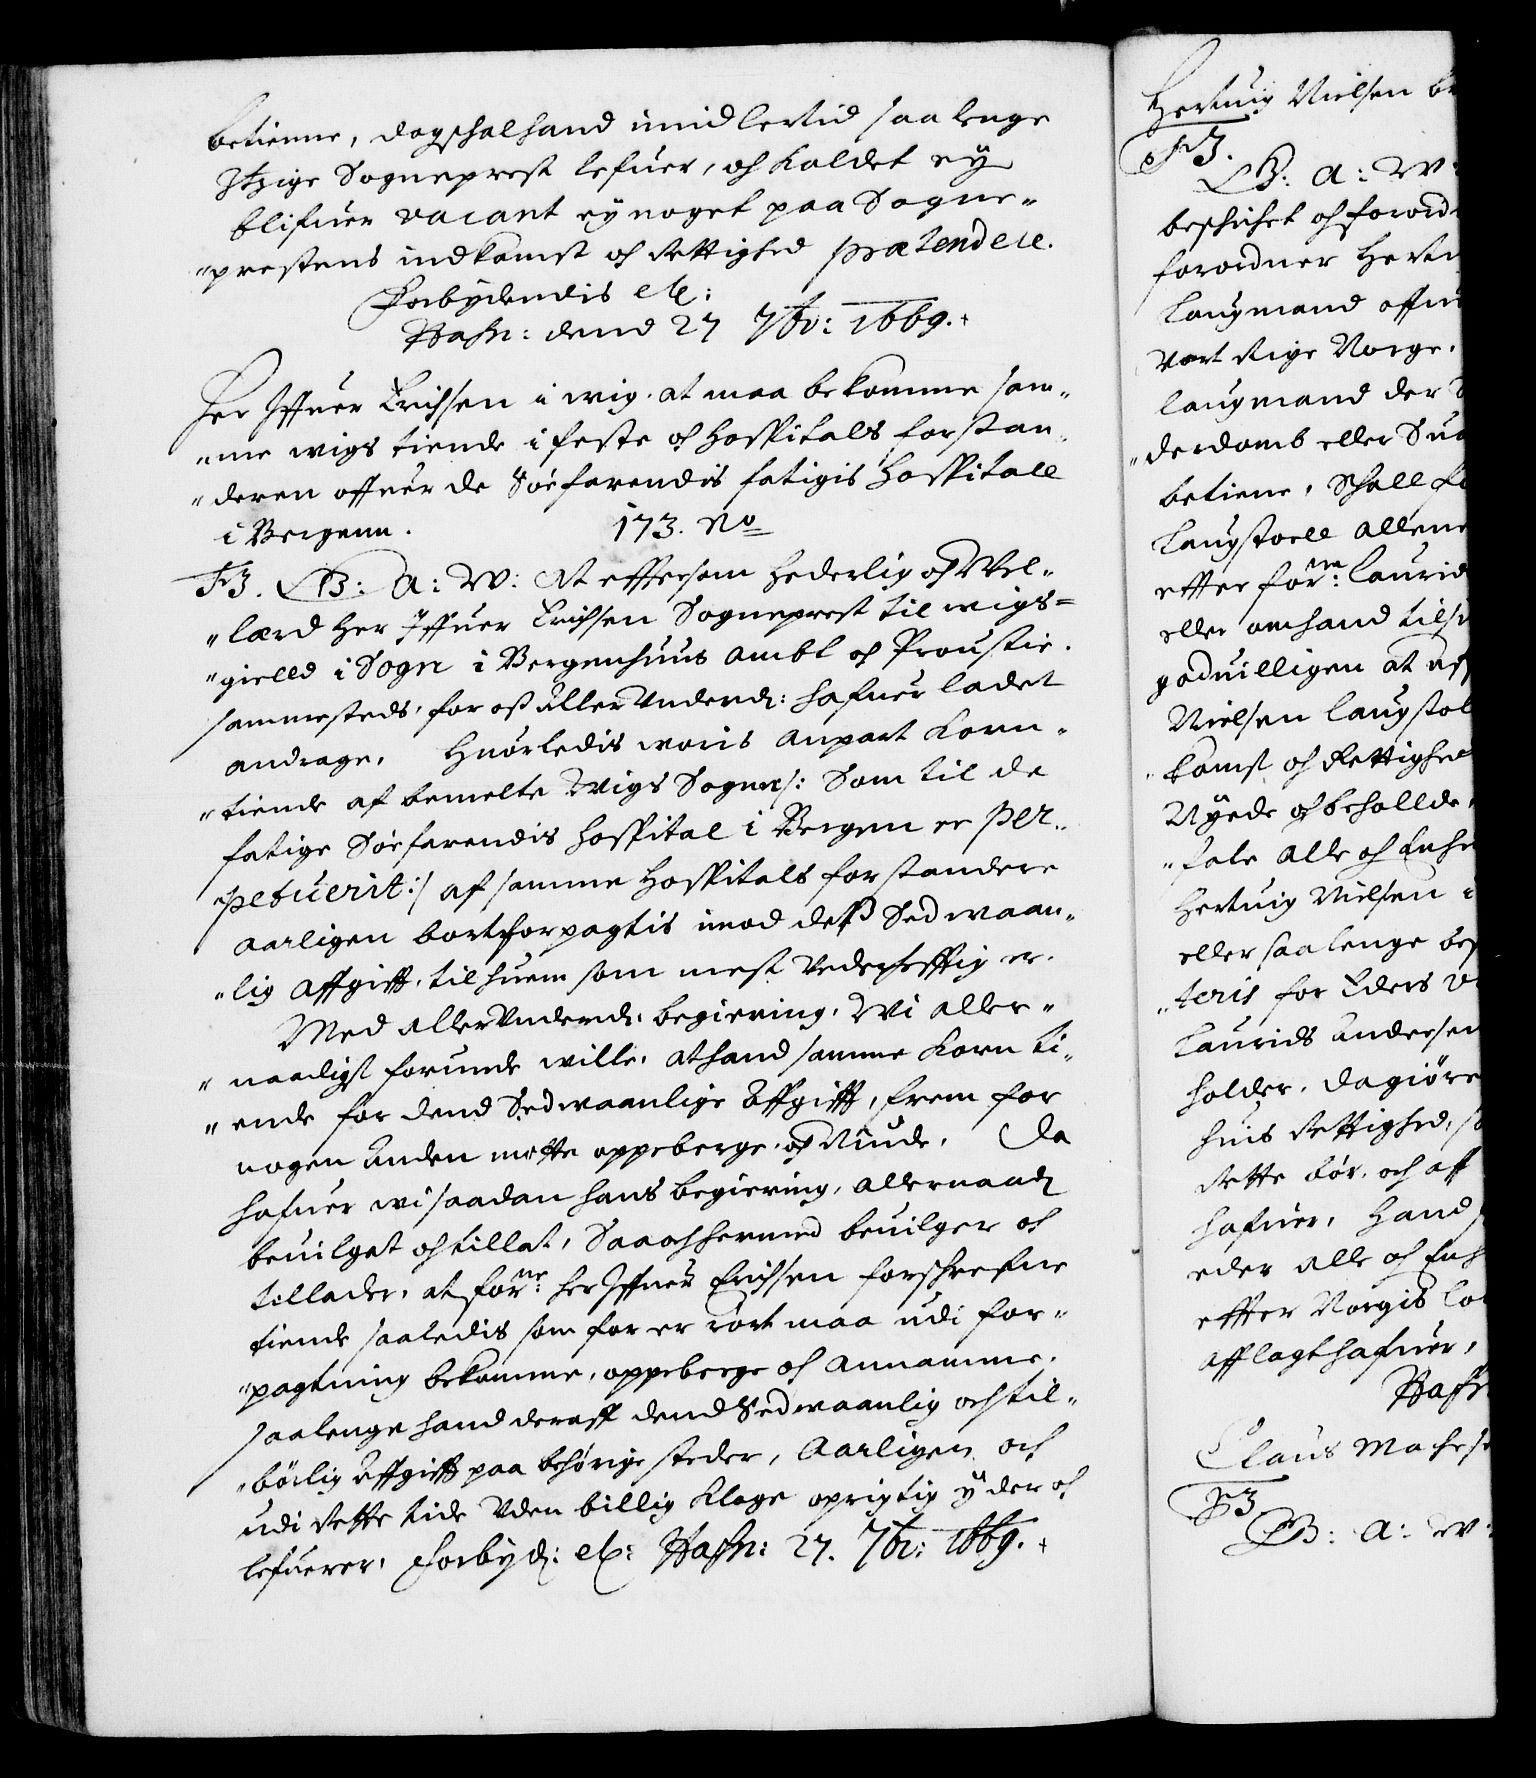 betienne, dog schal hand imidlertid saa lenge
Itzige Sogneprest lefuer, och kaldet ey
blifuer vacant ey noget paa Sogne„
„prestens indkomst och Rettighed prætendere.
Forbydendis etc:
Hafn: dend 27 7br: 1669.
Her Iffuer Erichsen i wiig. at maa bekomme sam„
„me wigs tiende i feste och Hospitals forstan„
„deren offuer de Söefarendis fatigis Hospitall
i Bergenn. 173. No
F3. G B: A: W: At eftersom Hederlig och Wel„
„lærd Her Iffuer Erichsen Sogneprest til wigs=
„gield i Sogn i Bergenhuus Ambt och Proustie.
sammesteds, for oss Aller Underd: hafuer ladet
andrage, Huorledis woris anpart Korn„
„tiende af bemelte Wigs Sogn /: Som til de
fatige Söefarendis Hospital i Bergen er per„
„petuerit :/ af samme Hospitals forstandere
aarligen bortforpagtis imod dess Sedwaan„
„lig Affgifft, til huem som mest Vederhefftig er.
Med Aller Underd: begiering, Wi aller„
„naadigst forunde wille, at hand samme Korn ti„
„ende for dend Sedwaanlige Affgifft, frem for
nogen Anden motte oppeberge och Niude, Da
hafuer wi saadan hans begiering, allernaad:
beuilget och tillat, Saa och hermed beuilger och
tillader, at forne: her Iffuer Erichsen forschrefne
tiende saaledis som for er rört maa udi for„
„pagtning bekomme, oppeberge och annamme,
saalenge hand deraff dend Sedwaanlig och til„
„börlig Affgifft paa behörige steder, Aarligen och
udi Rette tide Uden billig Klage oprigtig yder och
lefuerer, Forbyd: etc: Hafn: 27. 7br: 1669.
Hertuig Nielsen be
F3.
G B: A: W:
beschichet och forord
forordner Hertu
Laugmand offue
Vort Rige Norge.
laugmand der S
„derdomb eller Sua
betiene, Schall fo
Laugstoell allene
efter forne: Laurid
eller om hand tils
goduilligen at aff
Nielsen laugstol
komst och Rettighed
Nyde och beholde,
„fale Alle och Enhu
Hertuig Nielsen i
eller saa lenge bes
„teris for Eders V
Laurids Andersen
holder, da giøre
huis Rettighed, so
Rette bör, och aff
hafuer, Hand
eder alle och Enh
effter Norgis Lo
afflagt hafuer,
Hafn
Claus Mathese
F3
G B: A: W: